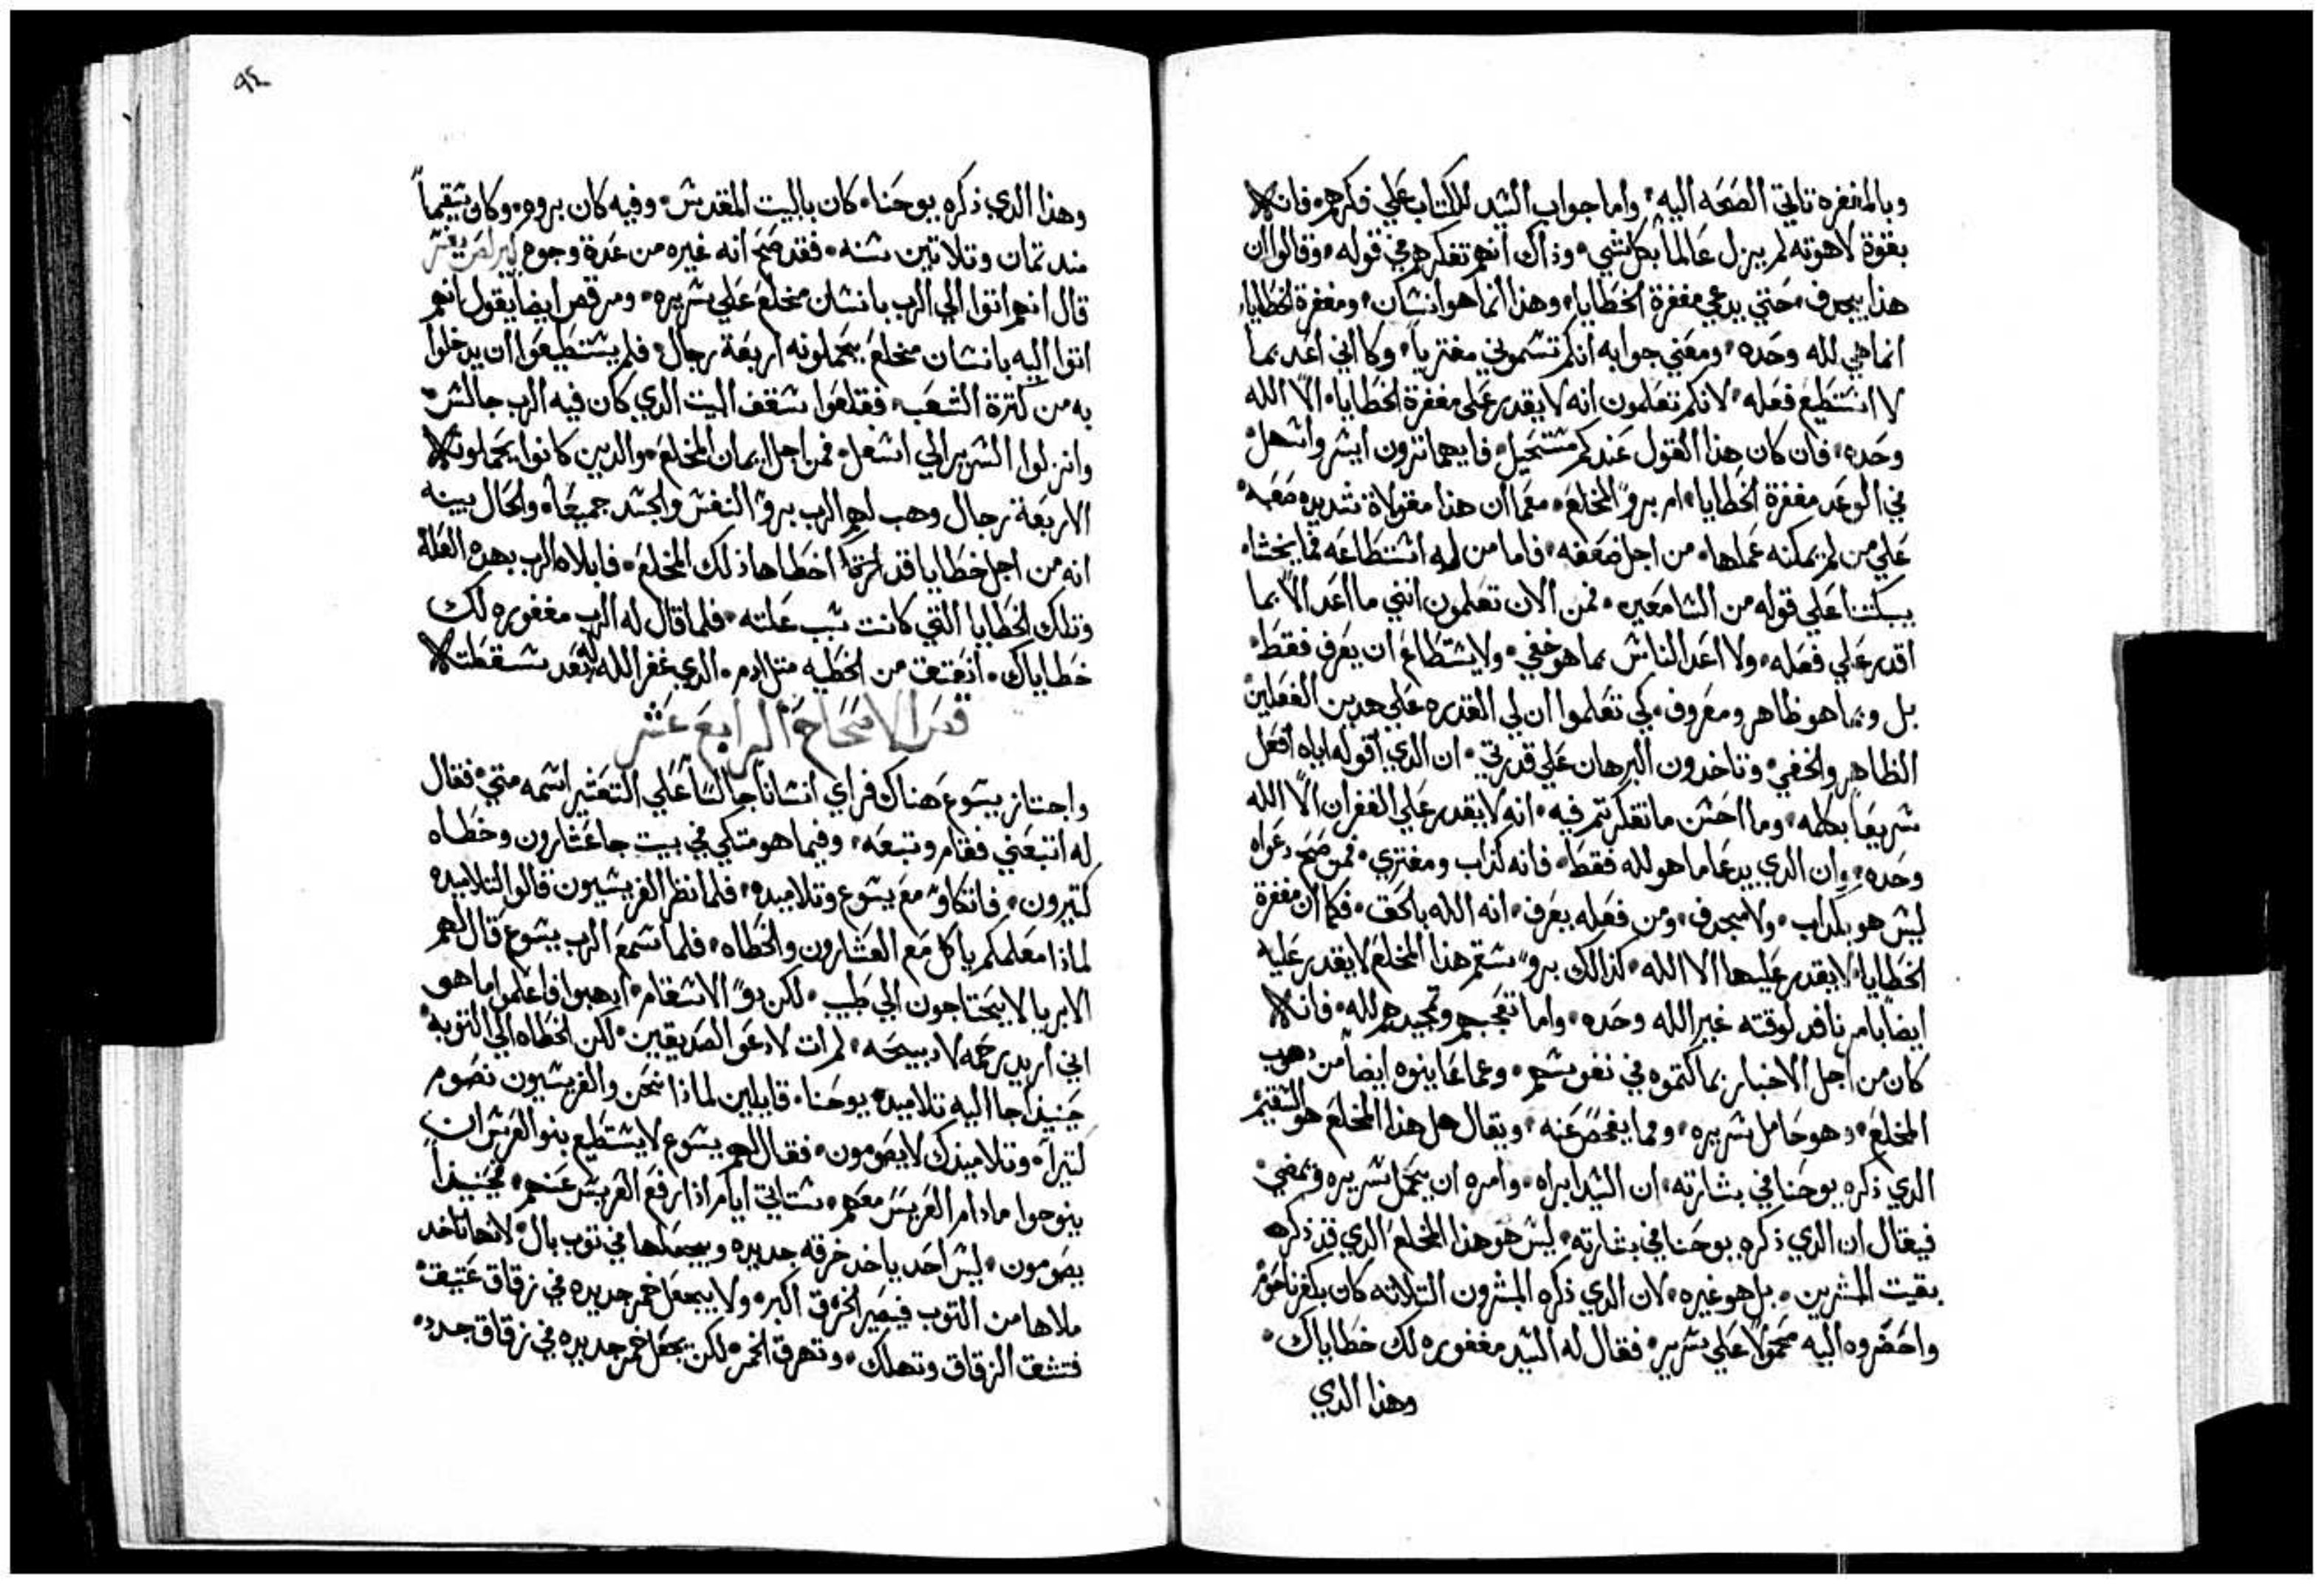 وبالمغفره تاتي الصحه اليه • واما جواب السيد للكتاب علي فكرهم • فانه
بقوة لاهوته لم يزل عالماً بكل شي • وذاك انهم تفكرهم في قوله • وقالوا ان
هذا يجدف • حتي يدعي مغفرة الخطايا • وهذا انما هو انسان • ومغفرة الخطايا
انما هي لله وحده • ومعني جوابه انكم تسموني مفترياً • وكااني اعد بما
لا استطيع فعله • لانكم تعلمون انه لا يقدر علي مغفرة الخطايا • الا الله
وحده • فان كان هذا القول عندكم مستحيل • فايهما ترون ايسر واسهل
في الوعد مغفرة الخطايا • ام برو المخلع • معما ان هذا مقولاة شديده صعبه
علي من لم يمكنه عملها • من اجل ضعفه • فاما من له استطاعه فما يخشا •
يبكتنا علي قوله من السامعين • فمن الان تعلمون انني ما اعد الا بما
اقدر علي فعله • ولا اعد الناس بما هو خفي • ولا يستطاع ان يعرف فقط •
بل وبما هو ظاهر ومعروف • كي تعلموا ان لي القدره علي هدين الفعلين
الظاهر والخفي • وتاخدون البرهان علي قدرتي • ان الدي اقوله اياه افعل
سريعاً بكلمه • وما احسن ما تفكرتم فيه • انه لا يقدر علي الغفران الا الله
وحده • وان الدي يدعا ما هو لله فقط • فانه كداب ومفتري • فمن صح دعواه
ليس هو بكداب • ولا مجدف • ومن فعله يعرف • انه الله بالحق • فكما ان مغفرة
الخطايا • لا يقدر عليها الا الله • كدالك برو سقم هدا المخلع لا يقدر عليه
ايضاً بامر نافد لوقته غير الله وحده • واما تعجبهم وتمجيدهم لله • فانه
كان من اجل الاخبار بما كتموه في نفوسهم • وعما عاينوه ايضاً من دهوب
المخلع • وهو حامل سريره • ومما يفحص عنه • ويقال هل هدا المخلع هو السقيم
الدي دكره يوحنا في بشارته • ان السيد ابراه • وامره ان يحمل سريره ويمضي •
فيقال ان الدي دكره يوحنا في بشارته • ليس هو هدا المخلع الدي قد دكره
بقيت المبشرين • بل هو غيره • لان الدي دكره المبشرون التلاته كان بكفرناحوم
واحضروه اليه محمولاً علي سرير • فقال له السيد مغفوره لك خطاياك •
وهذا الدي
٩٤
وهذا الدي ذكره يوحنا • كان بالبيت المقدس • وفيه كان بروه • وكان سقيماً
مند تمان وتلاتين سنه • فقد صح انه غيره من عدة وجوه
قال انهم اتوا الي الرب بانسان مخلع علي سريره • ومرقص ايضاً يقول انهم
اتوا اليه بانسان مخلع يحملونه اربعة رجال • فلم يستطيعوا ان يدخلوا
به من كترة الشعب • فقلعوا سقف البيت الدي كان فيه الرب جالس •
وانزلوا السرير الي اسفل • فمن اجل ايمان المخلع • والدين كانوا يحملونه
الاربعة رجال وهب لهم الرب برو النفس والجسد جميعاً • والحال بينه
انه من اجل خطايا قد اخطاها ذلك المخلع • فابلاه الرب بهده العله
وتلك الخطايا التي كانت سبب علته • فلما قال له الرب مغفوره لك
خطاياك • انعتق من الخطيه متل ادم • الدي غفر الله له بعد سقطته
قصر الاصحاح الرابع عشر
واجتاز يسوع هناك فراي انساناً جالساً علي التعشير اسمه متي • فقال
له اتبعني فقام وتبعه • وفيما هو متكي في بيت جا عشارون وخطاه
كتيرون • فاتكاو مع يسوع وتلاميده • فلما نظر الفريسيون قالوا لتلاميده
لمادا معلمكم ياكل مع العشارون والخطاه • فلما سمع الرب يسوع قال لهم
الابريا لا يحتاجون الي طبيب • لكن دوا الاسقام • ادهبوا فاعلموا ما هو
اني اريد رحمه لا دبيحه • لم ات لادعو الصديقين • لكن الخطاه الي التوبه •
حينيداً جا اليه تلاميد يوحنا • قايلين لمادا نحن والفريسيون نصوم
كتيراً • وتلاميدك لا يصومون • فقال لهم يسوع لا يستطيع بنو العرس ان
ينوحوا ما دام العريس معهم • ستاتي ايام ادا رفع العريس عنهم • فحينيداً
يصومون • ليس احد ياخد خرقه جديده ويجعلها في توب بال • لانها تاخد
ملاها من التوب فيصير الخرق اكبر • ولا يجعل خمر جديده في زقاق عتيقه
فتشق الزقاق وتهلك • وتهرق الخمر • لكن يجعل خمر جديده في زقاق جدد •